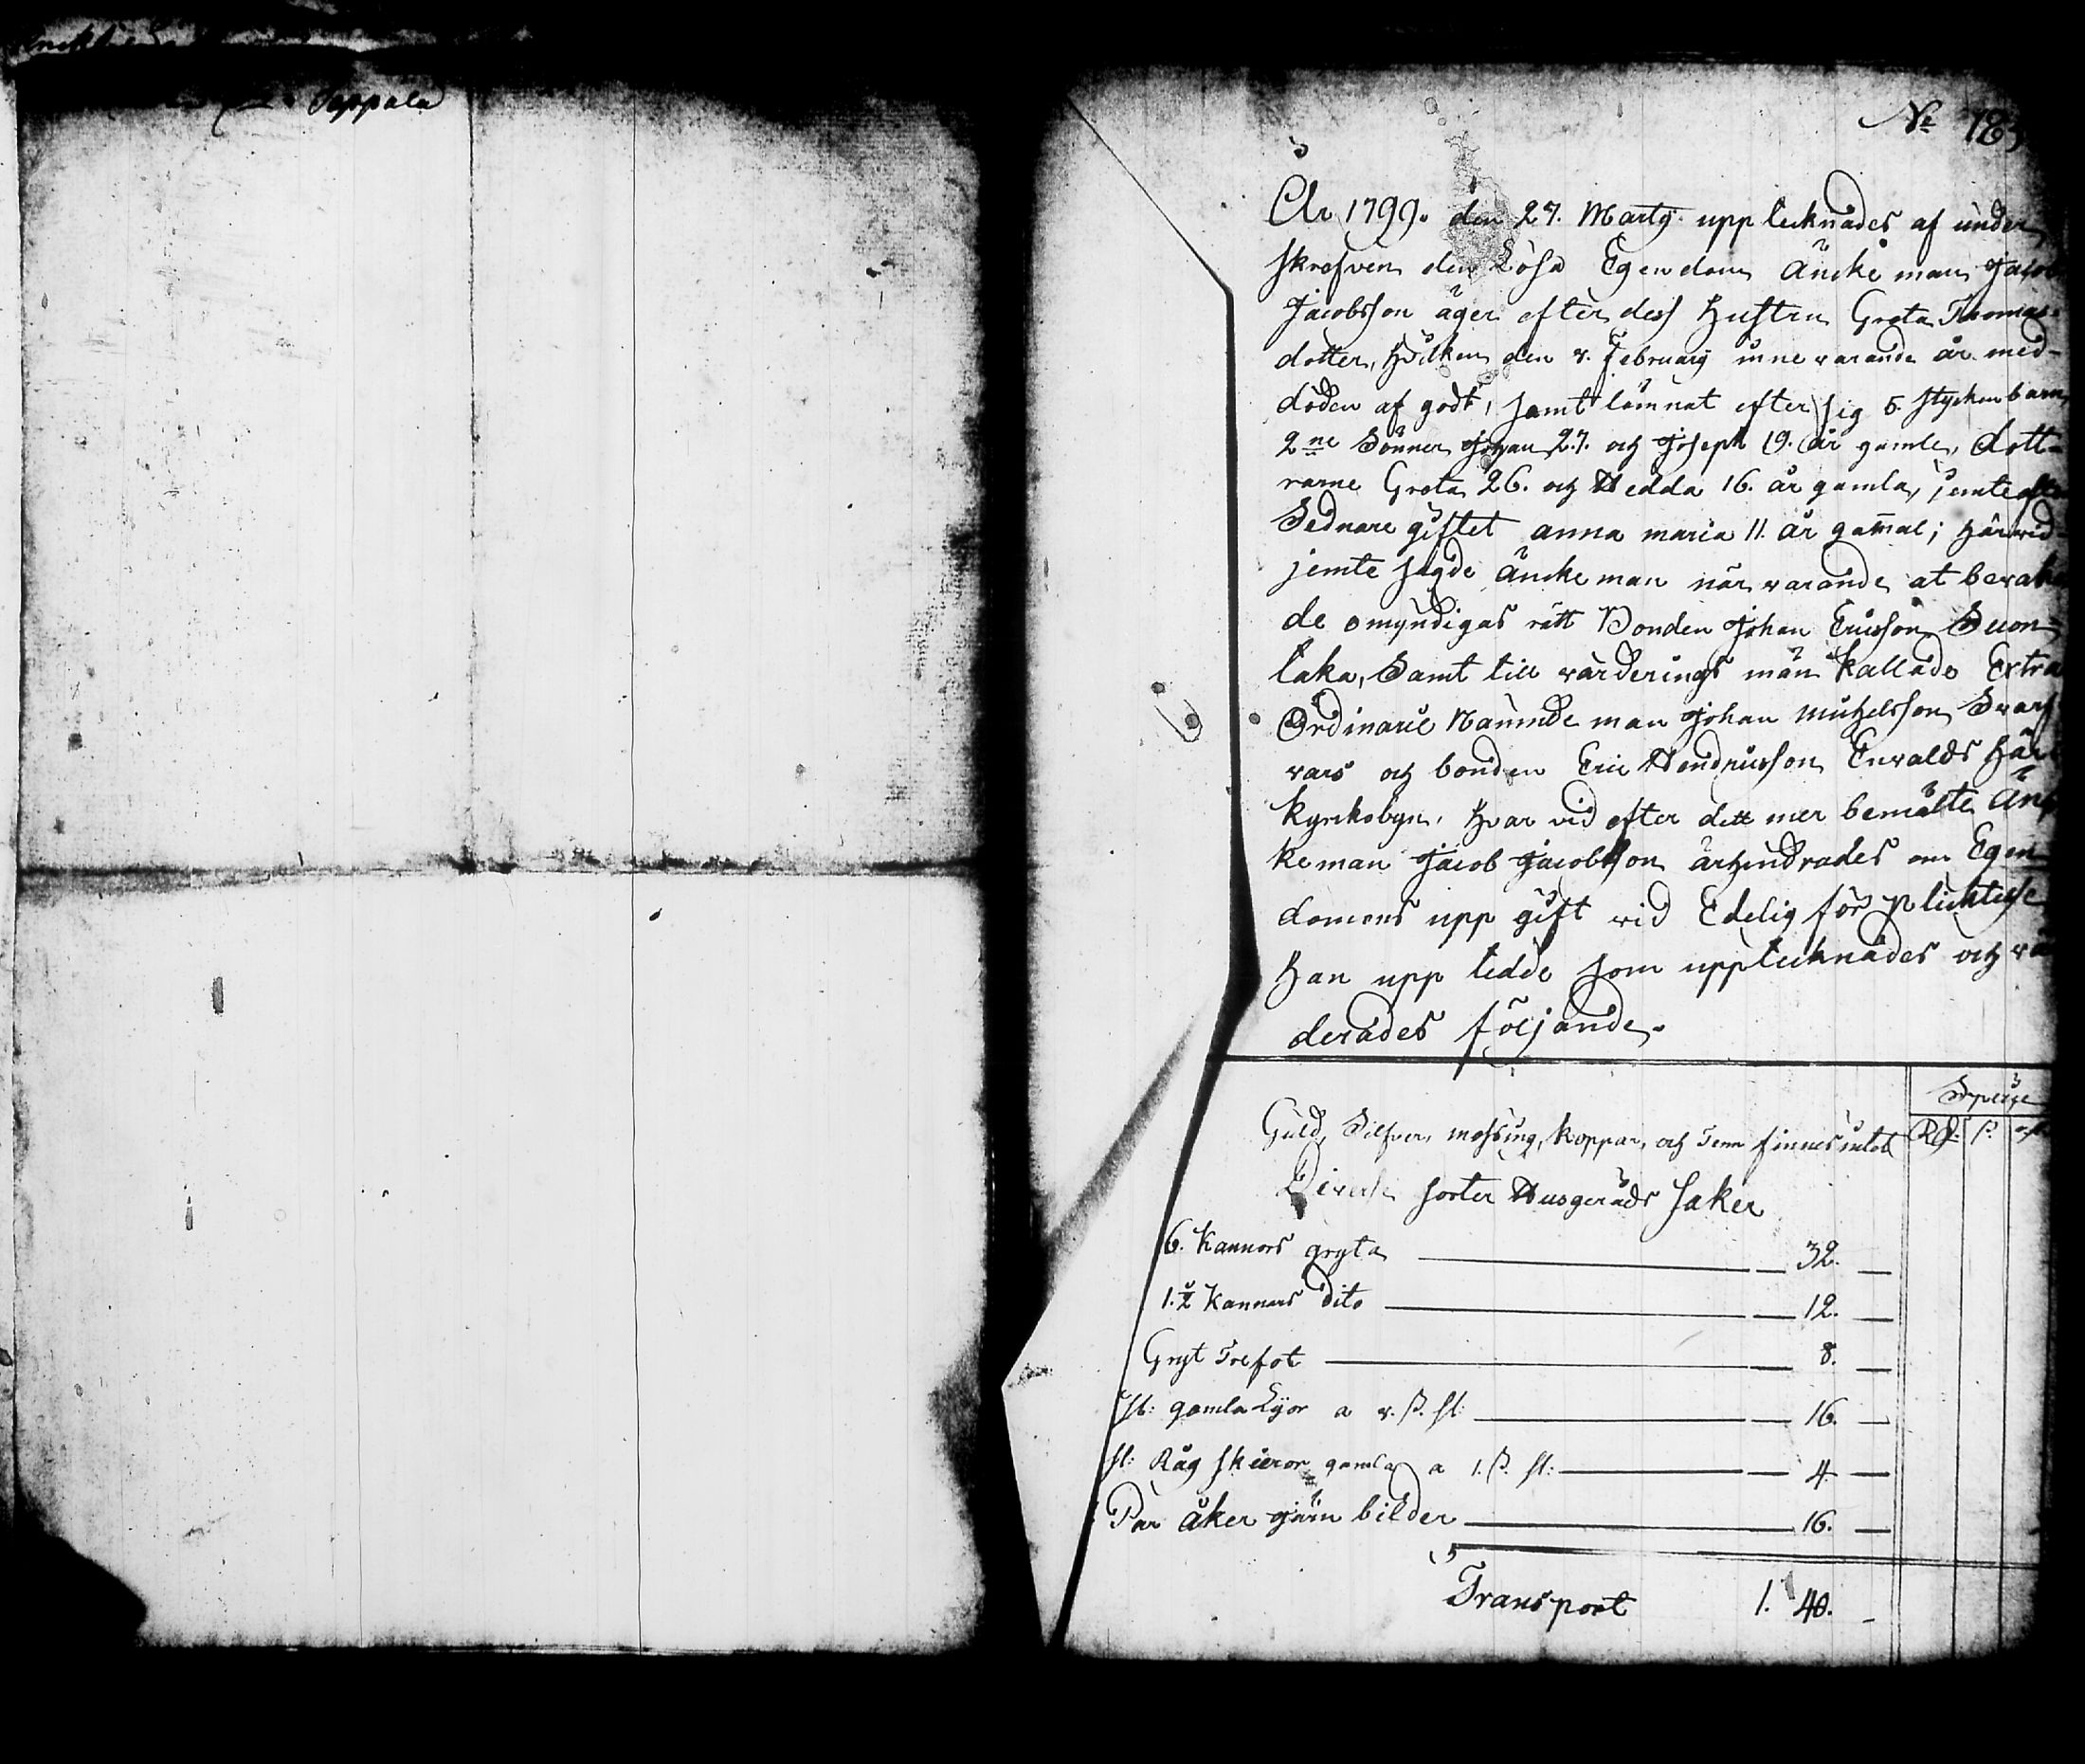 Seppälä
No 183
År 1799. den 27. Martij upptecknades af under
skrefven den Lösa Egendom Äncke man Jacob
Jacobsson äger efter dess Hustru Greta Thomas-
dotter, hvilken den 4. February innevarande år med
döden af gådt, samt lämnat efter sig 5. stycken barn,
2ne Söner Johan 27. och Joseph 19. år gamle, dott-
rarne Greta 26. och Hedda 16. år gamla, jemte
Sednare giftet anna maria 11. år gam̄al; härvid
jemte sagde äncke man när varande at bevaka
de omyndigas rätt Bonden Johan Ericsson Suon-
laka, Samt till värderings män kallade Extra
Ordinarie Nämnde man Johan Michelsson Svarf
vars och bonden Eric Hendricsson Envalds här
kyrkobyn, hvar vid efter dett mer bemälte Än
keman Jacob Jacobsson ärhindrades om Egen
domens upp gift vid Edelig för plicktelse
han upp tedde som upptecknades och vär
derades följande.
Specie
Guld, Silfver, mässing, koppar, och Tenn finnes intet Rd: ß:
Diverse sorter Husgeråds saker
6. kannors gryta 32.
1.½ kannors dito 12.
Gryt Trefot 8.
st: gamla Lijor a 4. ß. st: 16.
st: Råg skieror gamla a 1. ß. st: 4.
Par åker järn bilder 16.
Transport 1. 40.